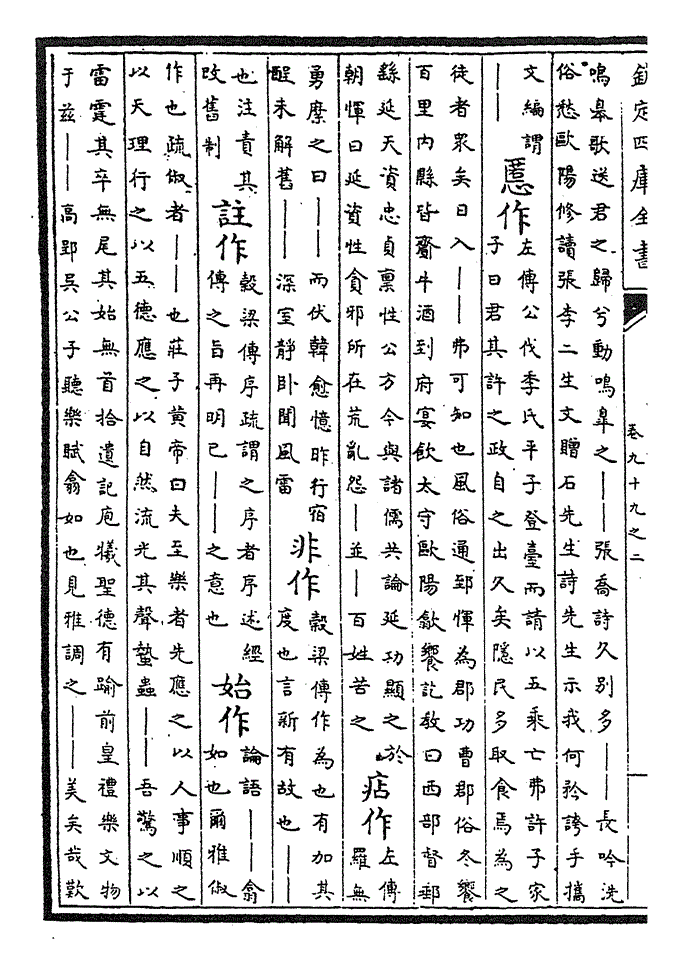 欽定四庫全書 卷九十九之二
鳴皋歌送君之歸兮動鳴皋之——張喬詩久別多——長吟洗
俗愁歐陽修讀張李二生文贈石先生詩先生示我何矜誇手攜
文編謂
——
慝作
左傳公伐季氏平子登臺而請以五乘亡弗許子家
子曰君其許之政自之出久矣隱民多取食焉為之
徒者眾矣日入——弗可知也風俗通郅惲為郡功曹郡俗冬饗
百里內縣皆齎牛酒到府宴飲太守歐陽歙饗訖教曰西部督郵
繇延天資忠貞禀性公方今與諸儒共論延功顯之於
朝惲曰延資性貪邪所在荒亂怨—並—百姓苦之
痁作
左傳
羅無
勇麇之曰——而伏韓愈憶昨行宿
酲未解舊——深室靜卧聞風雷
非作
穀梁傳作為也有加其
度也言新有故也——
也注責其
改舊制
註作
穀梁傳序疏謂之序者序述經
傳之旨再明已——之意也
始作
論語——翕
如也爾雅俶
作也疏俶者——也莊子黃帝曰夫至樂者先應之以人事順之
以天理行之以五德應之以自然流光其聲蟄蟲——吾驚之以
雷霆其卒無尾其始無首拾遺記庖犧聖德有踰前皇禮樂文物
于兹——高郢吳公子聽樂賦翕如也見雅調之——美矣哉歎